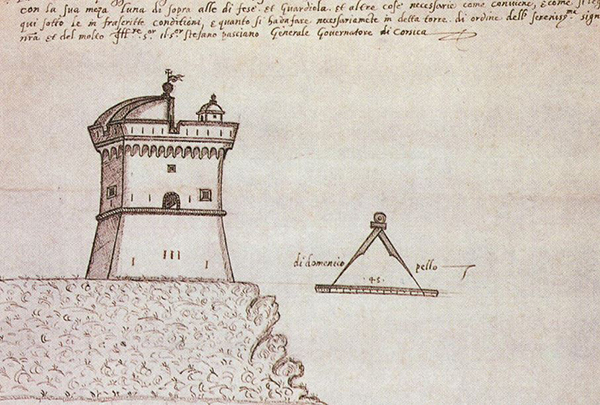 con la sua meza luna di sopra alle di fese. et Guardiola. et altre cose necessarie come conviene, e come si
qui sotto le in frascritte conditioni, e quanto si havafare necessariamēte in detta torre. di ordine dell
et del molto Stefano pasciano Generale Governatore di Corsica
di domenico pello
45.